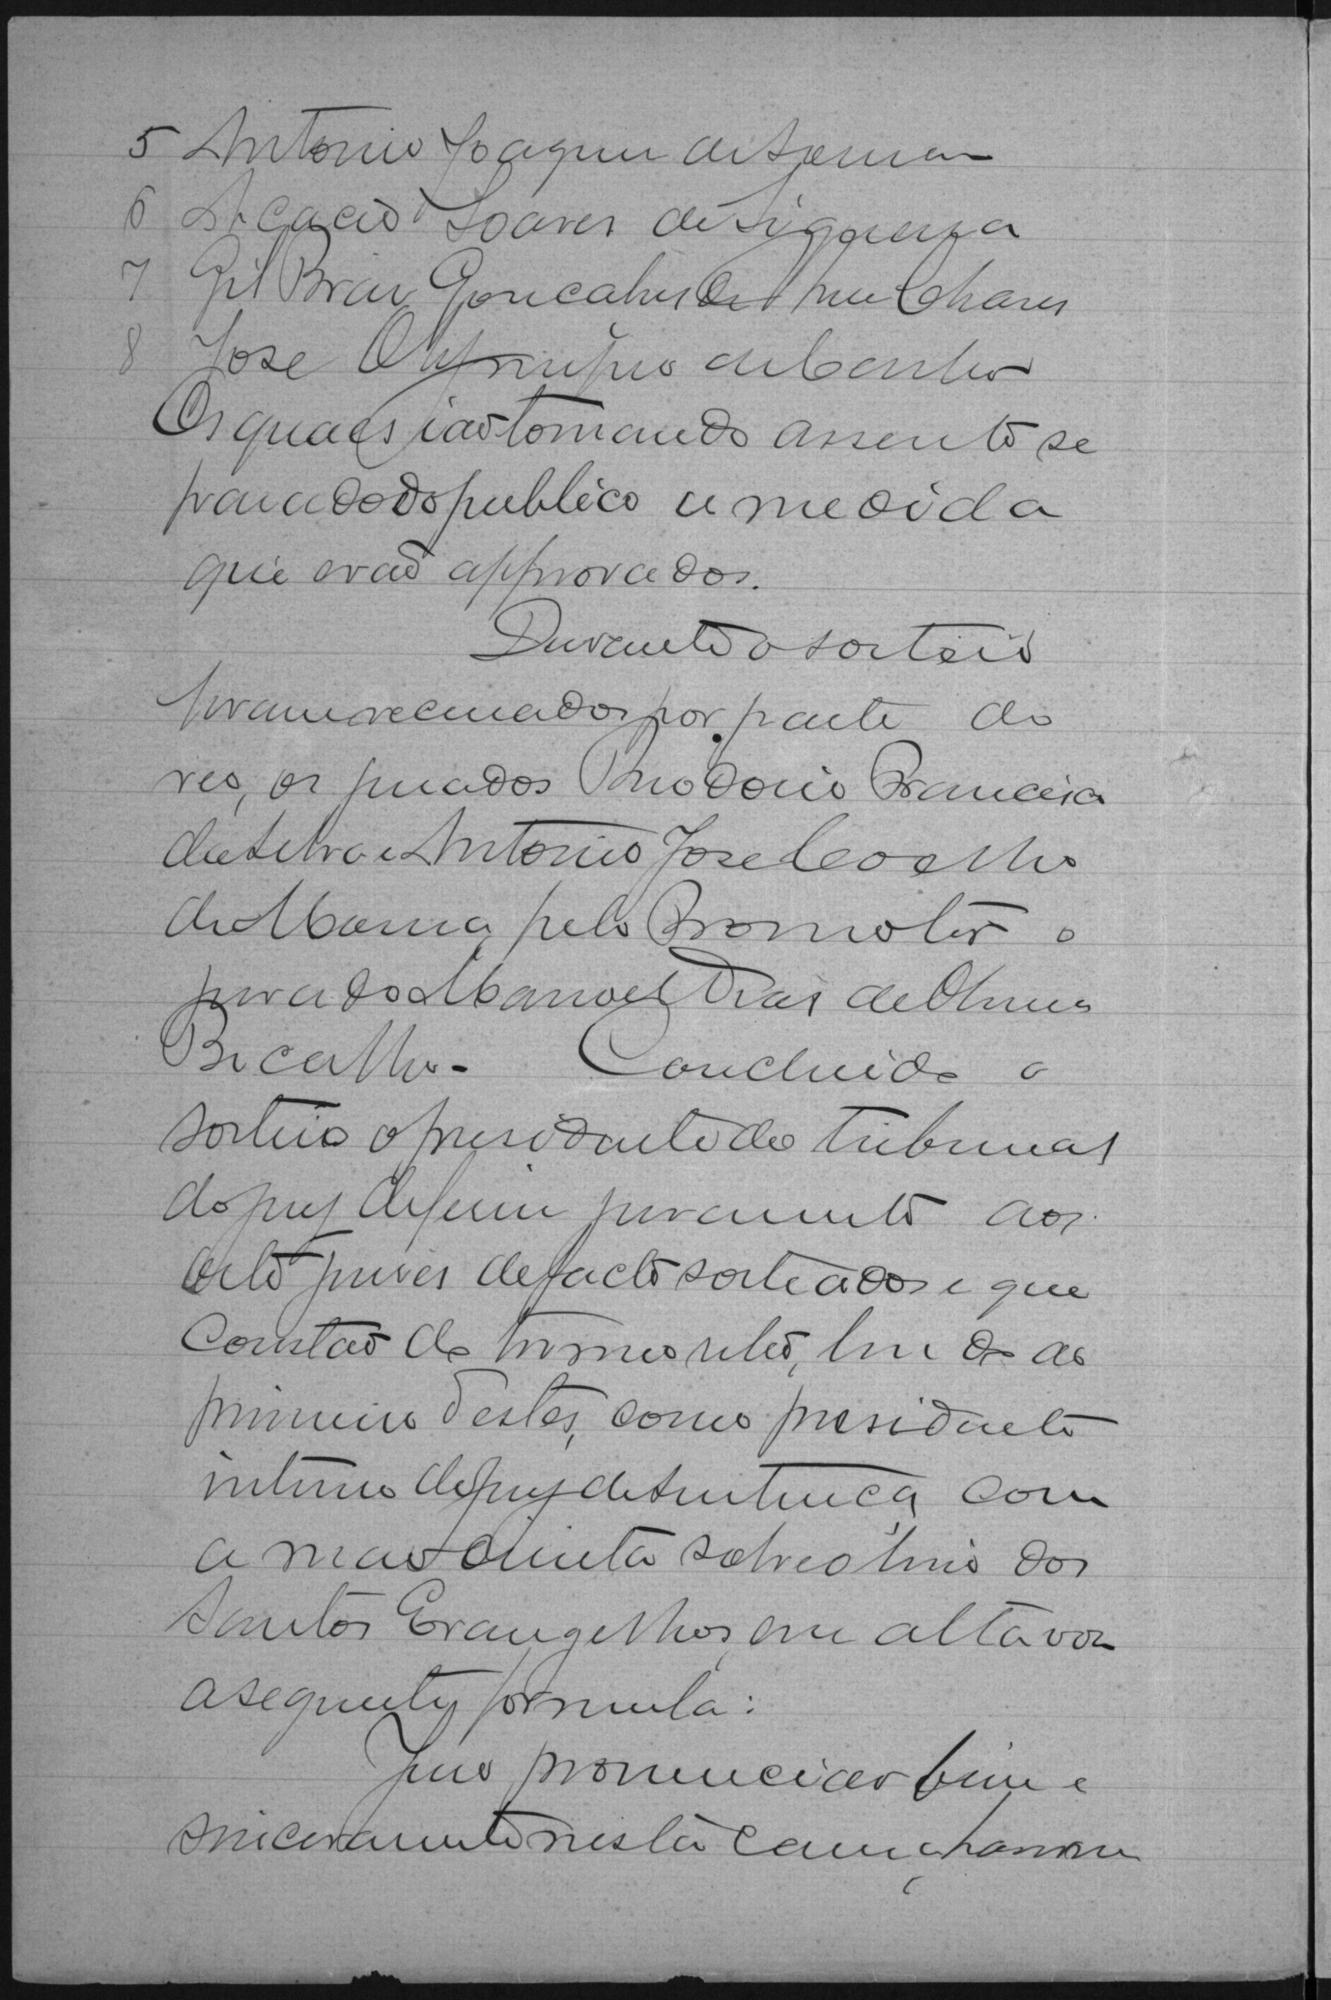 5 Antonio Joaquim de Lemos
6 Acacio Soares de Siqueira
7 Gil Braz Gonçalves Chaves
8 Jose Olympio de Castro
Os quaes ião tomando assento se
parado do publico a medida
que erão approvados.
Durante o sorteio
foram recusados por parte do
reo, os jurados Theodorio Francisco
da Silva e Antonio Jose Coelho
de Moura, pelo Promotor o
jurado Manoel Dias de
Bicalho. Concluido o
sorteio o presidente do tribunal
do jury deferiu juramento aos
oito juizes de facto sorteados e que
constão do termo retro, lendo ao
primeiro destes, como presidente
interino do jury de sentença, com
a mão direita sobre o livro dos
Santos Evangelhos, em alta voz
a seguinte formula:
Juro pronunciar bem e
sinceramente nesta causa,